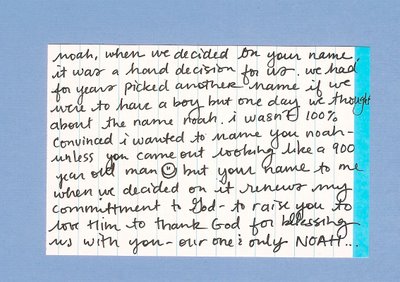 noah, when we decided on your name,
it was a hard decision for us. we had
for years picked another name if we
were to have a boy but one day we thought
about the name noah. i wasn't 100%
convinced i wanted to name you noah-
unless you came out looking like a 900
year old man ☺ but your name to me
when we decided on it renews my
committment to God- to raise you to
love Him to thank God for blessing
us with you- our one & only NOAH...